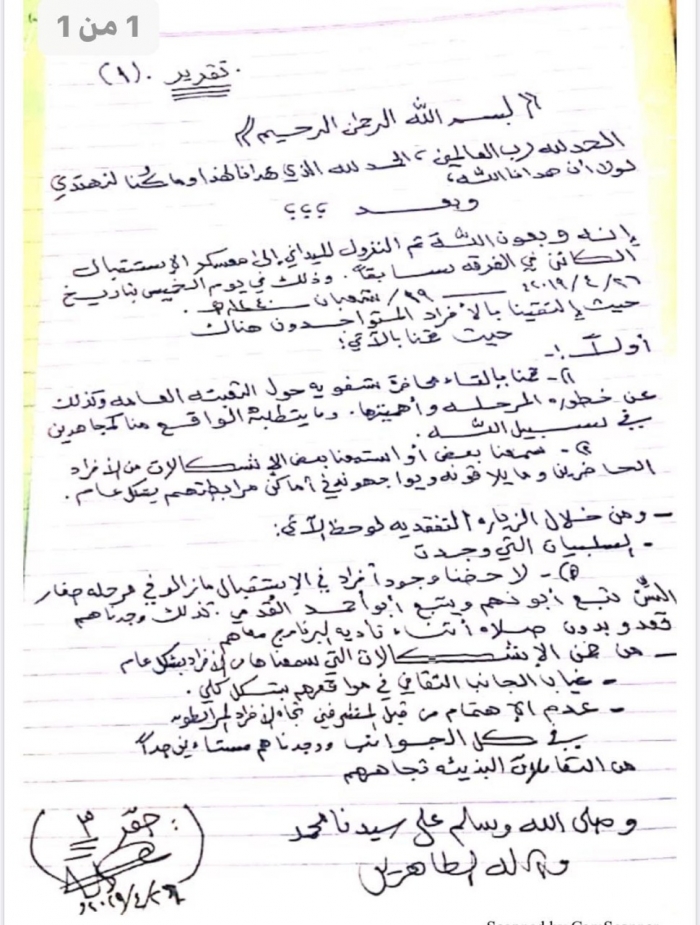 1 من 1
تقرير (١)
بسم الله الرحمن الرحيم
الحمد لله رب العالمين، الحمد لله الذي هدانا لهذا وما كنا لنهتدي
لولا أن هدانا الله،
وبعد ؟؟؟
إنه وبعون الله تم النزول الميداني إلى معسكر الإستقبال
الكائن في الفرقه سابقاً. وذلك في يوم الخميس بتاريخ
٢٠١٩/٤/٢٦ ـــ ١٩/شعبان ١٤٤٠هـ.
حيث إلتقينا بالأفراد المتواجدون هناك
حيث قمنا بالآتي:
أولاً :-
١- قمنا بإلقاء محاضرة شفويه حول التعبئه العامه وكذلك
عن خطوره المرحله وأهميتها. وما يتطلبة الواقع منا كمجاهدين
في سبيل الله.
٢- سمعنا بعض أو استمعنا بعض الإشكالات من الأفراد
الحاضرين وما يلاقونه ويواجهونه في أماكن مرابطتهم بشكل عام.
- ومن خلال الزياره التفقديه لوحظ الآتي:
- السلبيات التي وجدت
١- لاحضنا وجود أفراد في الإستقبال مازالو في مرحله صغار
السن تبع أبو نهم ويتبع أبو أحمد القدمي. كذلك وجدناهم
قعد وبدون صلاه أثناء تاديه البرنامج معاهم
- من ضمن الإشكالات التي سمعناها من الأفراد بشكل عام
- غياب الجانب الثقافي في مواقعهم بشكل كلي.
- عدم الإهتمام من قبل المشرفين تجاه الأفراد المرابطون
في كل الجوانب ووجدناهم مستاءين جداً
من التعاملات البذيئه تجاههم
وصلى الله وسلم على سيدنا محمد
وآله الطاهرين